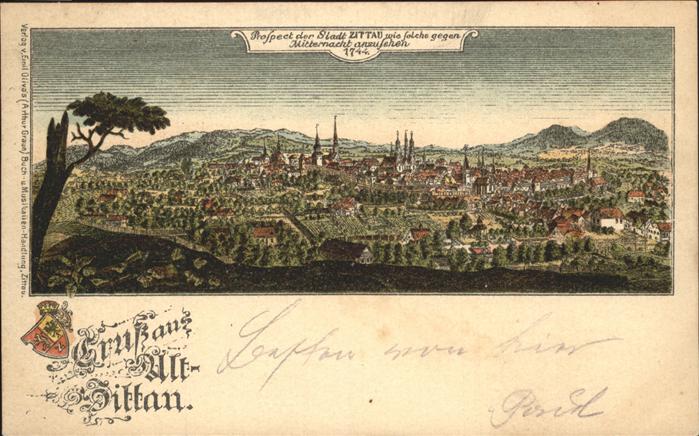 Prospect der Stadt ZITTAU wie solche gegen
Mitternacht anzusehen
1744.
Verlag v. Emil Oliva's (Arthur Graun) Buch- u. Musikalien-Handlung, Zittau.
Gruß aus
Alt-
Zittau.
von hier